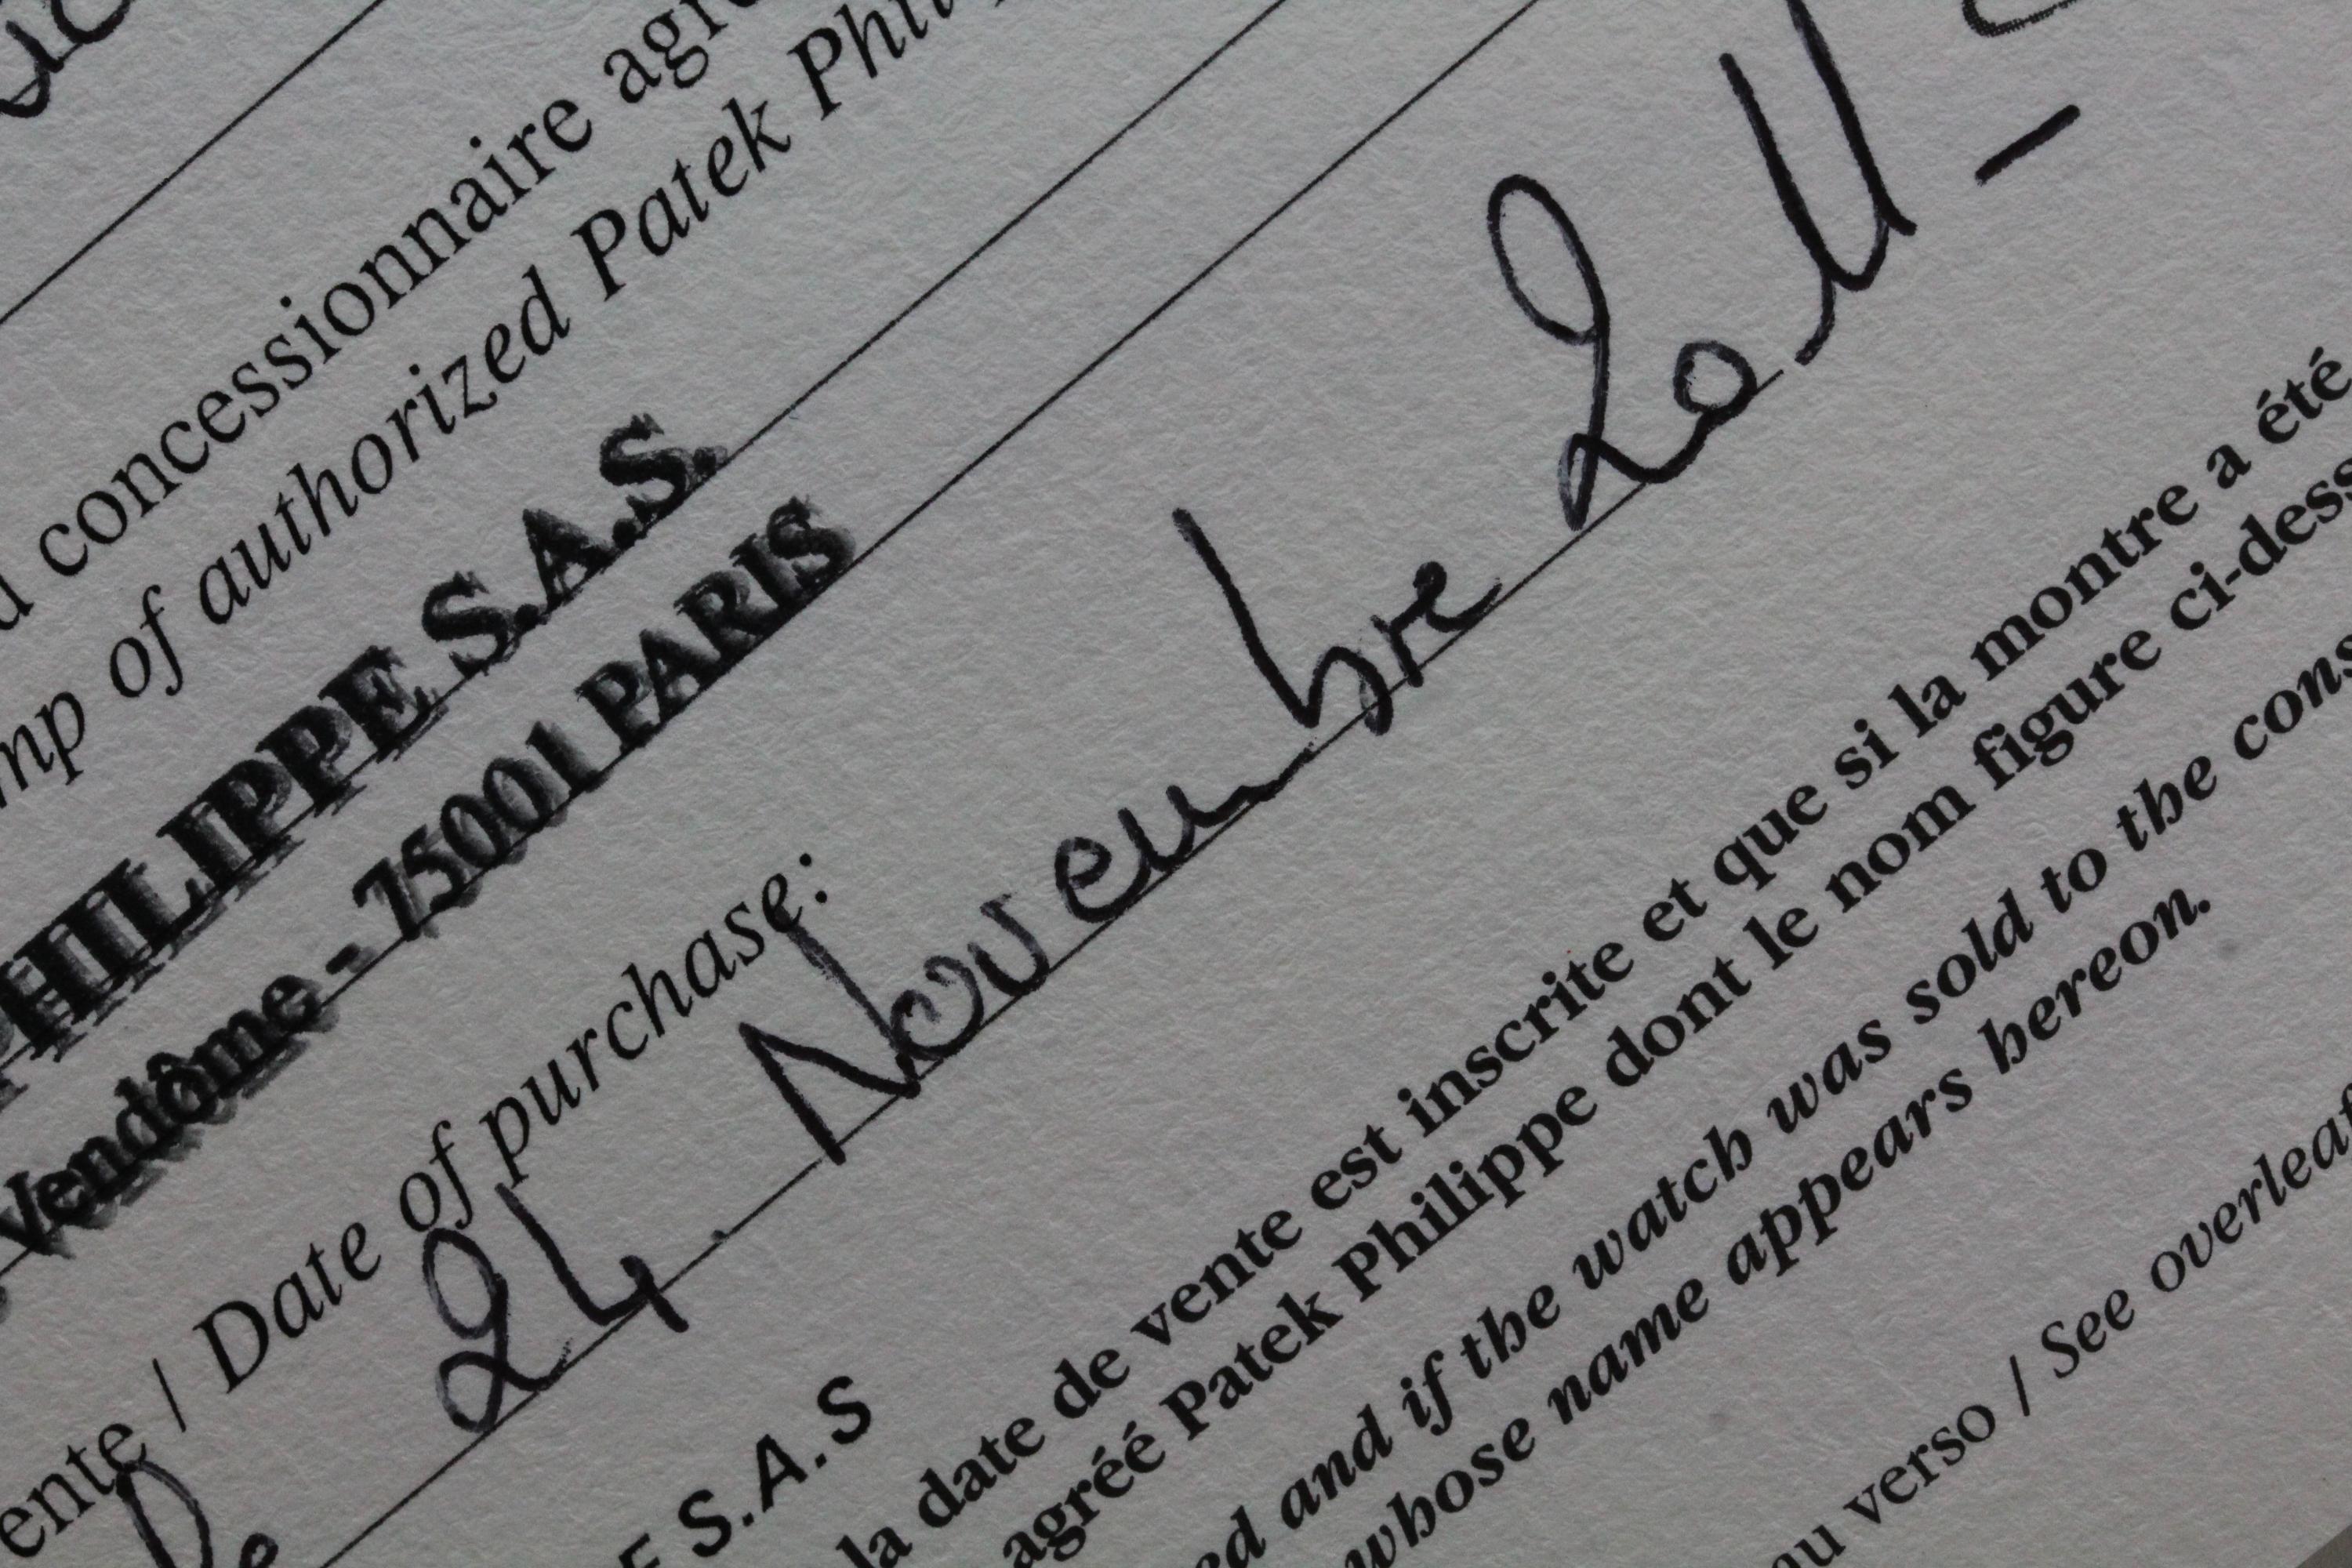 concessionnaire agré
mp of authorized Patek Phili
PHILIPPE S.A.S.
Vendôme - 75001 PARIS
ente / Date of purchase:
Le 24. Novembre 2011 -
E S.A.S
la date de vente est inscrite et que si la montre a été
agréé Patek Philippe dont le nom figure ci-dess
ed and if the watch was sold to the cons
whose name appears hereon.
au verso / See overleaf